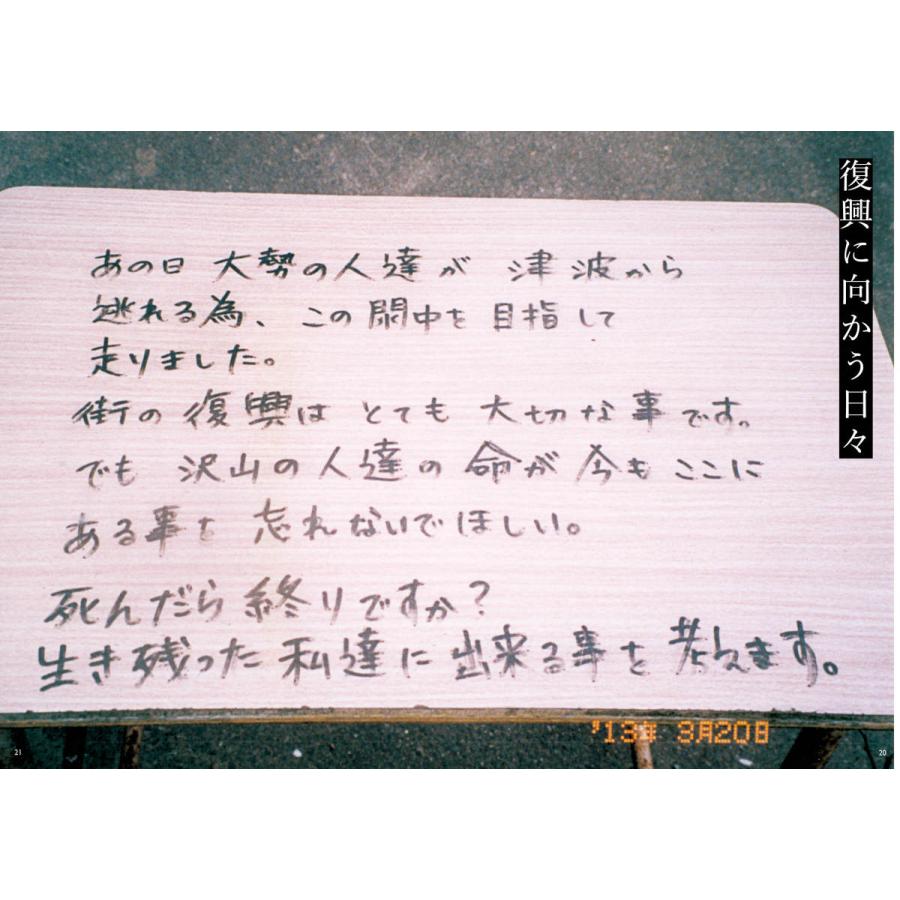 復興に向かう日々
あの日 大勢の人達が 津波から
逃れる為、この閖中を目指して
走りました。
街の復興はとても大切な事です。
でも 沢山の人達の命が今もここに
ある事を忘れないでほしい。
死んだら終りですか?
生き残った私達に出来る事を考えます。
'13年 3月20日
21
20